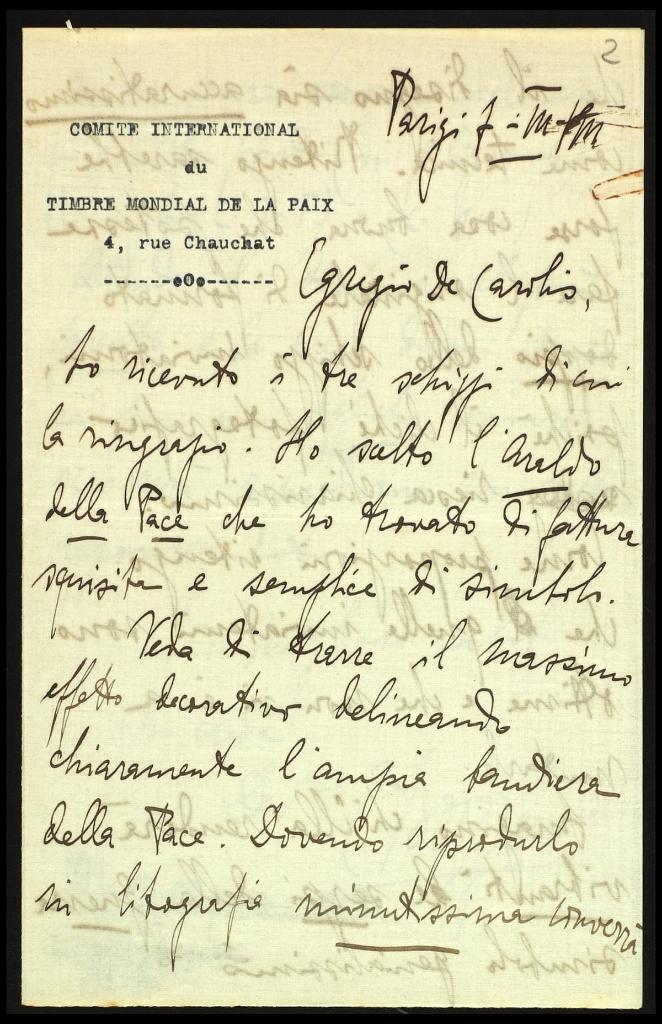 2
Parigi 7 - III
COMITE INTERNATIONAL
du
TIMBRE MONDIAL DE LA PAIX
4, rue Chauchat
------o0o------
Egregio De Carolis,
ho ricevuto i tre schizzi di cui
la ringrazio. Ho scelto l'Araldo
della Pace che ho trovato di fattura
squisita e semplice di simbolo.
Veda di trarre il massimo
effetto decorativo delineando
chiaramente l'ampia bandiera
della Pace. Dovendo riprodurlo
in litografia minutissima converrà